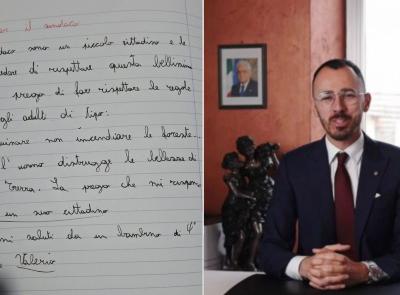 per il sindaco
daco sono un piccolo cittadino e le
edere di rispettare questo bellissimo
prego di far rispettare le regole
gli adulti di tipo:
uinare non incendiare le foreste...
l'uomo distrugge le bellezze d
Terra. La prego che mi rispon
un suo cittadino
ni saluti da un bambino di 4°
Valerio